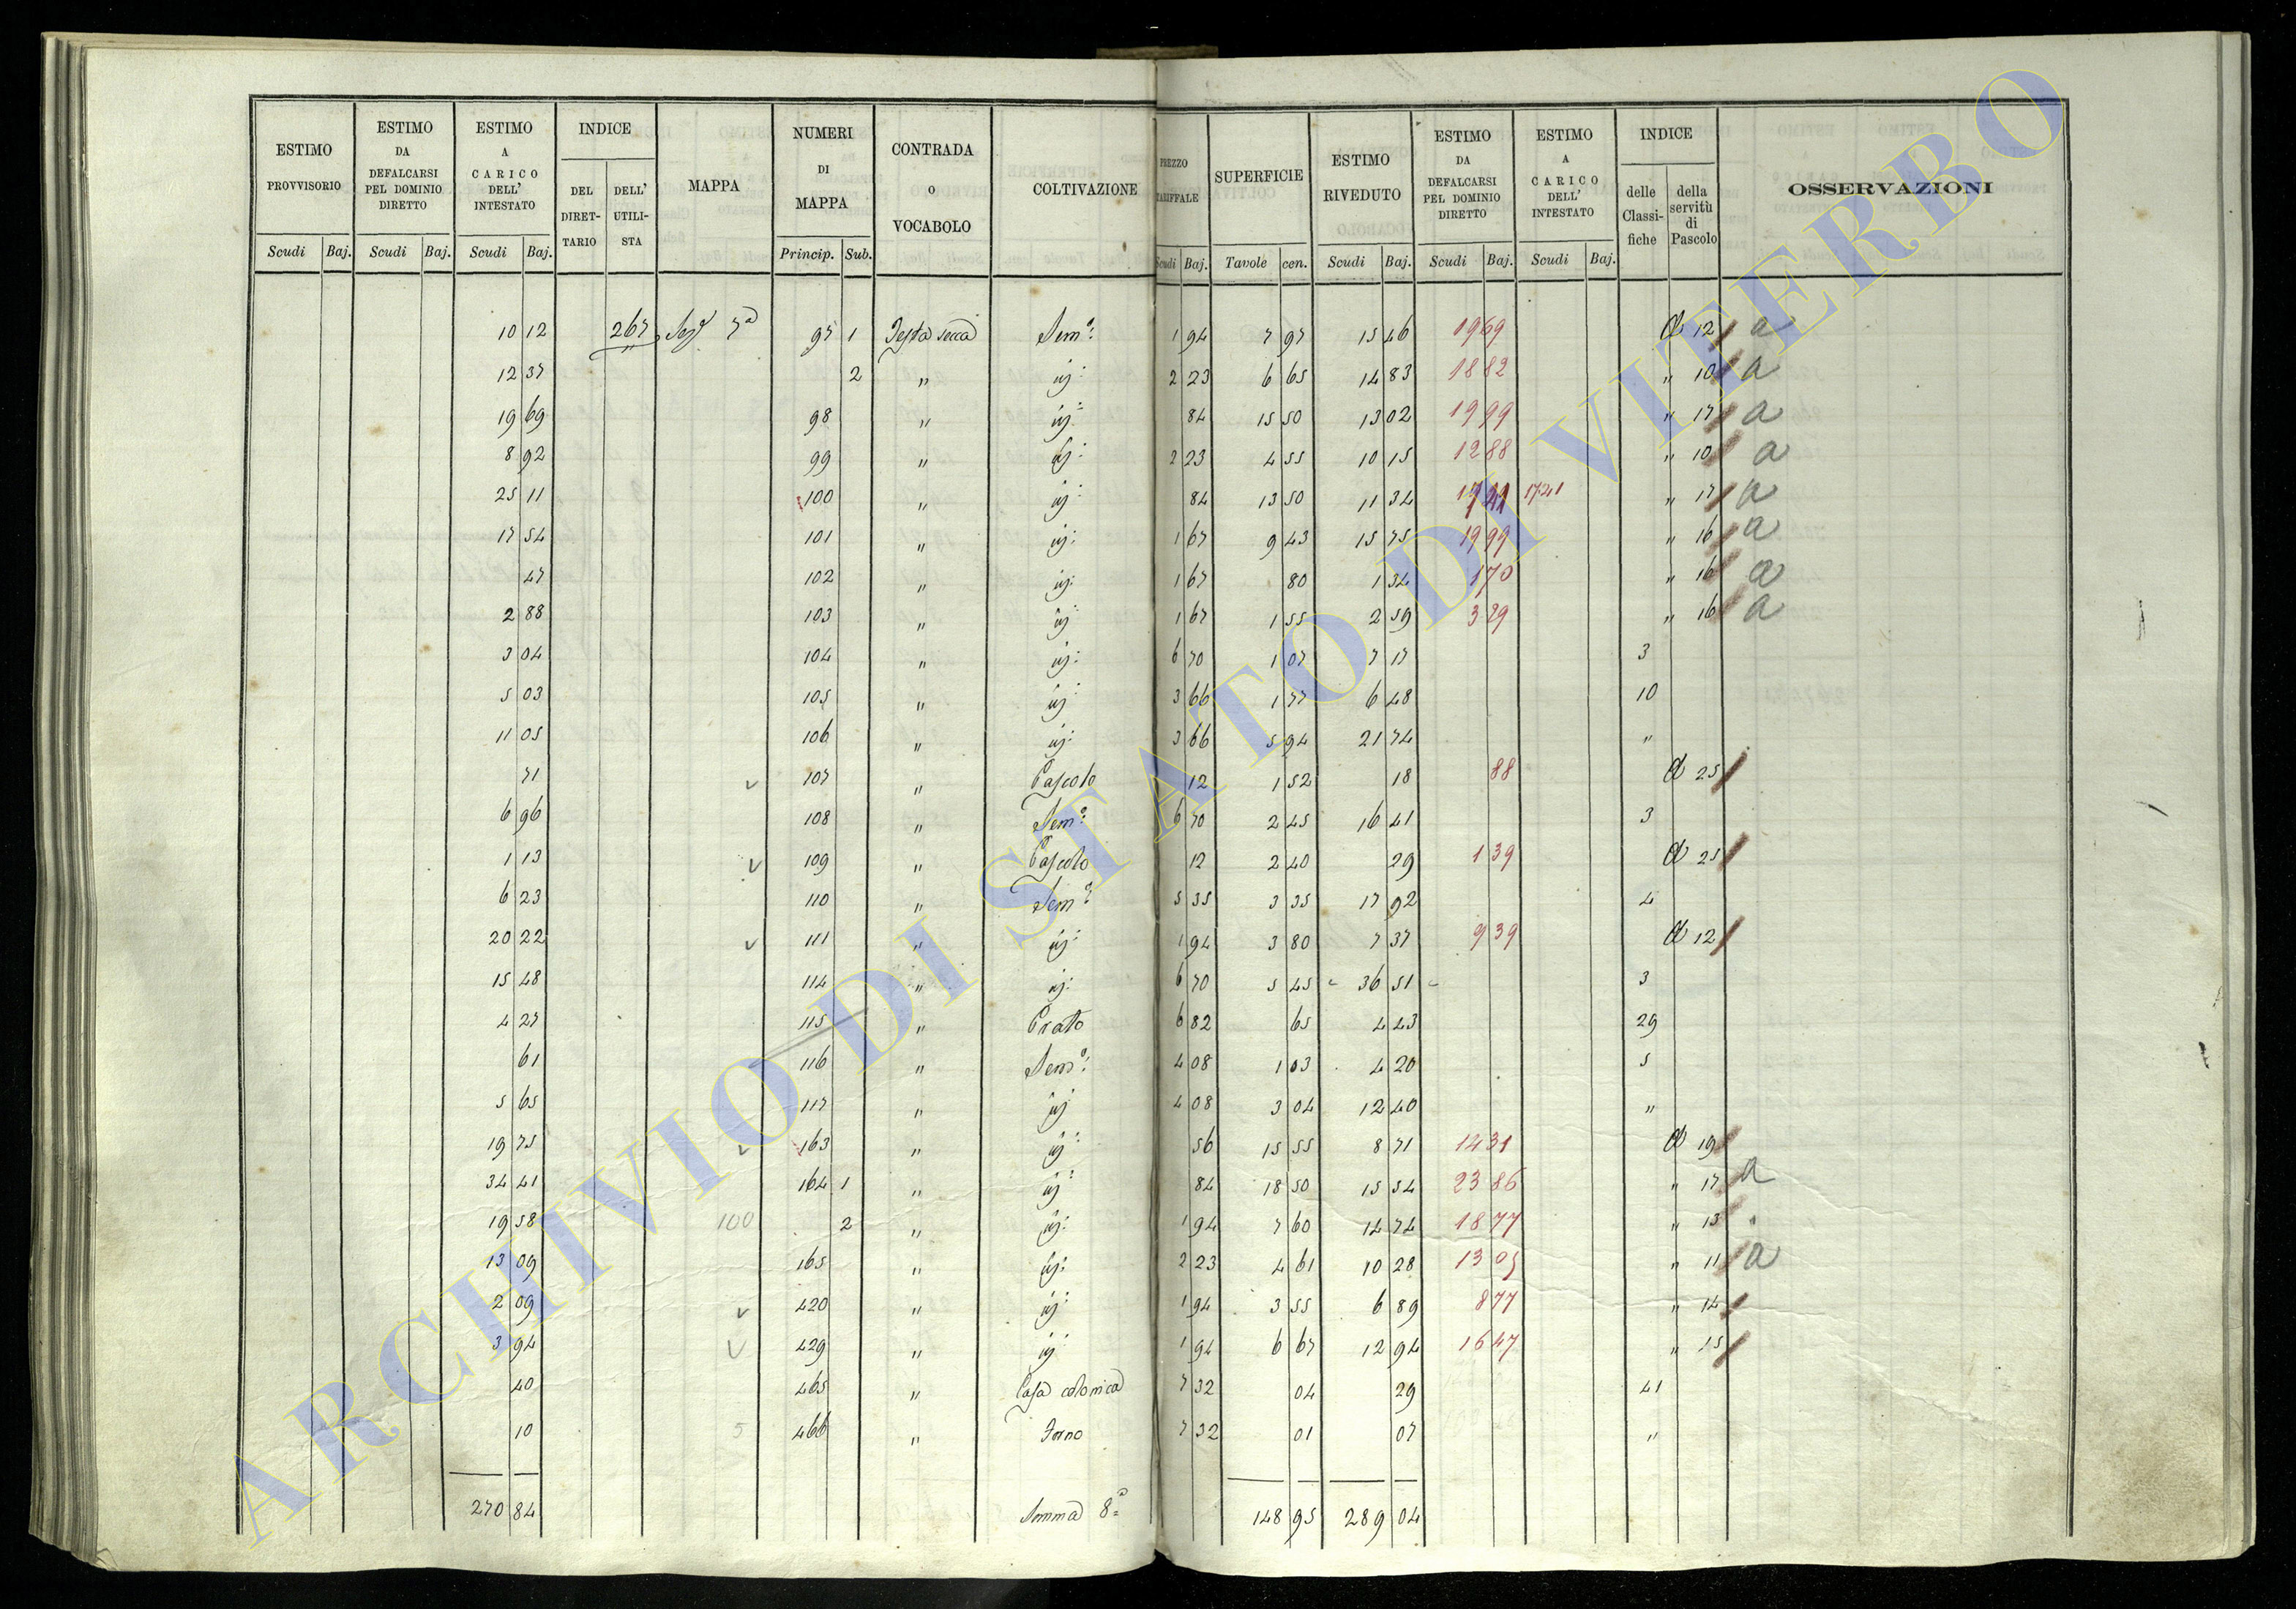 ESTIMO PROVVISORIO | ESTIMO DA DEFALCARSI PEL DOMINIO DIRETTO | ESTIMO A CARICO DELL' INTESTATO | INDICE DEL DIRETTARIO | DELL' UTILISTA | MAPPA | NUMERI DI MAPPA | CONTRADA O VOCABOLO | COLTIVAZIONE | PREZZO TARIFFALE | SUPERFICIE | ESTIMO RIVEDUTO | ESTIMO DA DEFALCARSI PEL DOMINIO DIRETTO | ESTIMO A CARICO DELL' INTESTATO | INDICE delle Classifiche | della servitù di Pascolo | OSSERVAZIONI
Scudi Baj. | Scudi Baj. | Scudi Baj. | Princip. Sub. | Scudi Baj. | Tavole cen. | Scudi Baj. | Scudi Baj. | Scudi Baj.
10 12 | 267 | Sez.e 7a | 97 1 | Testa secca | Sem.o: | 1 94 | 7 97 | 15 46 | 19 69 | d 12 | a
12 37 | 2 | " | id: | 2 23 | 6 65 | 14 83 | 18 82 | " 10 | a
19 69 | 98 | " | id: | 84 | 15 50 | 13 02 | 19 99 | " 17 | a
8 92 | 99 | " | id: | 2 23 | 4 55 | 10 15 | 12 88 | " 10 | a
25 11 | 100 | " | id: | 84 | 13 50 | 11 34 | 17 41 | 17 41 | " 17 | a
17 54 | 101 | " | id: | 1 67 | 9 43 | 15 75 | 19 99 | " 16 | a
47 | 102 | " | id: | 1 67 | 80 | 1 34 | 1 70 | " 16 | a
2 88 | 103 | " | id: | 1 67 | 1 55 | 2 59 | 3 29 | " 16 | a
3 04 | 104 | " | id: | 6 70 | 1 07 | 7 17 | 3
5 03 | 105 | " | id: | 3 66 | 1 77 | 6 48 | 10
11 05 | 106 | " | id: | 3 66 | 5 94 | 21 74 | "
71 | v | 107 | " | Pascolo | 12 | 1 52 | 18 | 88 | d 25
6 96 | 108 | " | Sem.o: | 6 70 | 2 45 | 16 41 | 3
1 13 | v | 109 | " | Pascolo | 12 | 2 40 | 29 | 1 39 | d 25
6 23 | 110 | " | Sem.o: | 5 35 | 3 35 | 17 92 | 4
20 22 | v | 111 | " | id: | 1 94 | 3 80 | 7 37 | 9 39 | d 12
15 48 | 114 | " | id: | 6 70 | 5 45 | 36 51 | 3
4 27 | 115 | " | Prato | 6 82 | 65 | 4 43 | 29
61 | 116 | " | Sem.o: | 4 08 | 1 03 | 4 20 | 5
5 65 | 117 | " | id: | 4 08 | 3 04 | 12 40 | "
19 75 | v | 163 | " | id: | 56 | 15 55 | 8 71 | 14 31 | d 19
34 41 | 164 1 | " | id: | 84 | 18 50 | 15 54 | 23 86 | " 17 | a
19 58 | 100 | 2 | " | id: | 1 94 | 7 60 | 14 74 | 18 77 | " 13 | "
13 09 | 165 | " | id: | 2 23 | 4 61 | 10 28 | 13 05 | " 11 | a
2 09 | v | 420 | " | id: | 1 94 | 3 55 | 6 89 | 8 77 | " 14
3 94 | v | 429 | " | id: | 1 94 | 6 67 | 12 94 | 16 47 | " 15
40 | 465 | " | Casa colonica | 7 32 | 04 | 29 | 41
10 | 5 | 466 | " | Forno | 7 32 | 01 | 07 | "
270 84 | Somma 8a | 148 95 | 289 04
ARCHIVIO DI STATO DI VITERBO